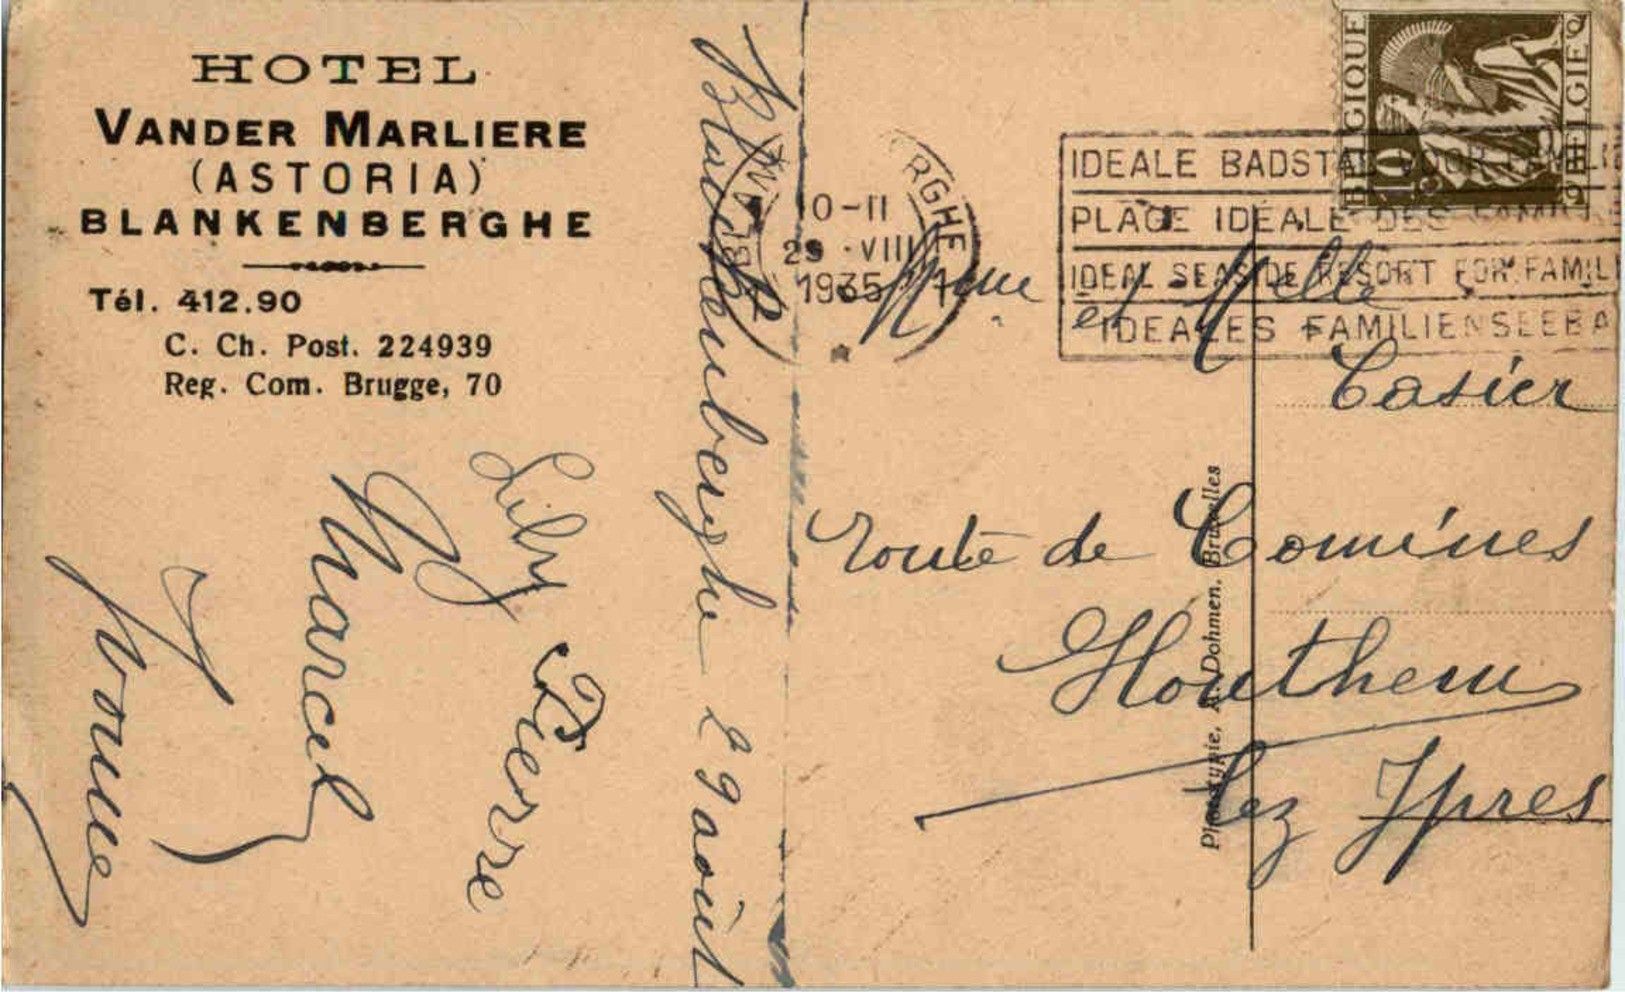 HOTEL
VANDER MARLIERE
(ASTORIA)
BLANKENBERGHE
Tél. 412.90
C. Ch. Post. 224939
Reg. Com. Brugge, 70
Blankenberghe 29 août
Lily Pierre
Marcel
Yvonne
BLANK ERGHE
10-11
29 · VIII
1935
IDEALE BADSTAD VOOR FAMILI
PLAGE IDÉALE DES FAMILLE
IDEAL SEASIDE RESORT FOR FAMILI
IDEALES FAMILIENSEEBA
BELGIQUE
10 c
BELGIE
Mme et Melle
Casier
Route de Comines
Houthem
lez Ypres
Phototypie, A. Dohmen. Bruxelles